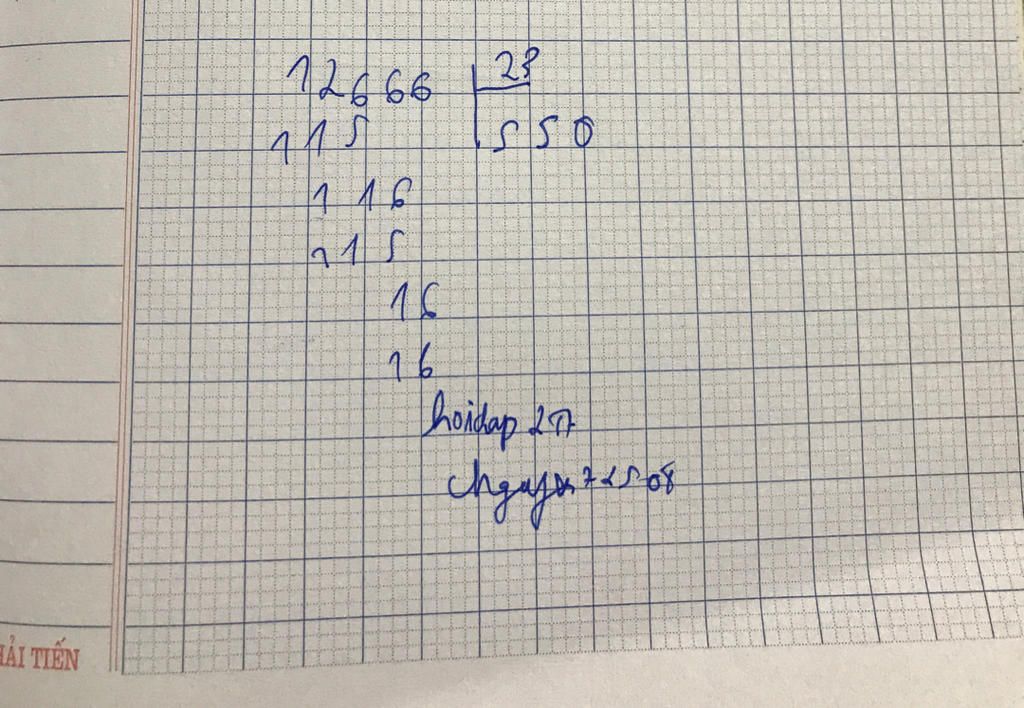 12666 23
115 550
116
115
16
16
hoidap 247
HẢI TIẾN